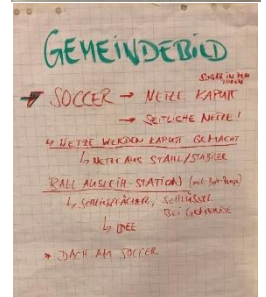 GEMEINDEBILD
SOCCER → NETZE KAPUTT
→ SEITLICHE NETZE!
↳ NETZE WERDEN KAPUTT GEMACHT
↳ NETZE AUS STAHL/STABILER
BALL AUSLEIH-STATION (mit
↳ SCHLIEßFÄCHER, SCHLÜSSEL
BEI GEMEINDE
↳ IDEE
* DACH AM SOCCER